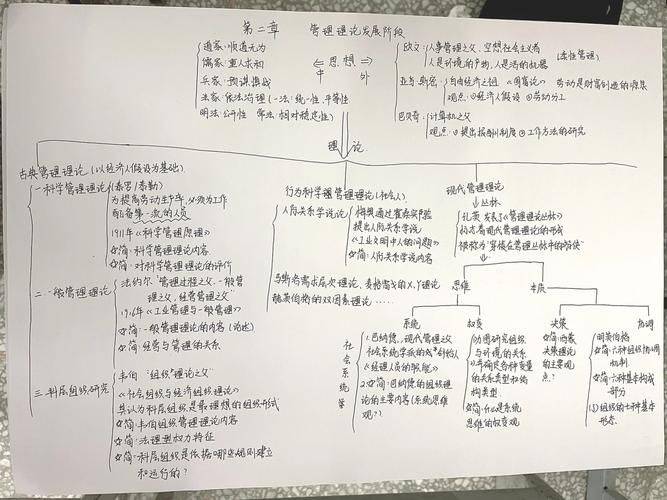 第二章 管理理论发展阶段
道家：顺道无为
儒家：重人求和
兵家：预谋慎战
法家：依法治理（一法：统一性、平等性
明法：公开性 常法：相对稳定性）
⇐ 思想 ⇒
中 外
欧文：人事管理之父，空想社会主义者
人是环境的产物，人是活的机器
（柔性管理）
亚当·斯密：自由经济之祖《国富论》 劳动是财富创造的源泉
观点：①经济人假设 ②劳动分工
巴贝奇：计算机之父
观点：①提出报酬制度 ②工作方法的研究
理论
古典管理理论（以经济人假设为基础）
一.科学管理理论（泰罗/泰勒）
为提高劳动生产率，必须为工作
配备第一流的人员
1911年《科学管理原理》
☆简：科学管理理论内容
☆简：对科学管理理论的评价
二.一般管理理论
法约尔"管理过程之父、一般管
理之父、经营管理之父"
1916年《工业管理与一般管理》
☆简：一般管理理论的内容（论述）
☆简：经营与管理的关系
三.科层组织研究
韦伯"组织理论之父"
《社会组织与经济组织理论》
其认为科层组织是最理想的组织形式
☆简：韦伯组织管理理论内容
☆简：法理型权力特征
☆简：科层组织是依据哪些规则建立
和运行的？
行为科学管理理论（社会人）
人际关系学说
梅奥通过霍桑实验
提出人际关系学
《工业文明中人的问题》
☆简：人际关系学说内容
马斯洛需求层次理论、麦格雷戈的X、Y理论
赫茨伯格的双因素理论……
现代管理理论
↓丛林
孔茨 发表了《管理理论丛林》
标志着现代管理理论的形成
被称为"穿梭在管理丛林中的游侠"
思维 本质
系统 权变 决策 协调
社会系统学
1.巴纳德，现代管理之父
社会系统学派的创始人
《经理人员的职能》
2.☆简：巴纳德的组织理
论的主要内容（系统思维
观？）
力图研究组织
与环境的关系
并确定各种变量
的关系类型和结
构类型.
☆简：什么是系统
思维的权变观
☆简：西蒙
决策理论
的主要观
点？
明茨伯格
☆简：六种组织协调
机制
☆简：六种基本构成
部分
组织的七种基本
形态.